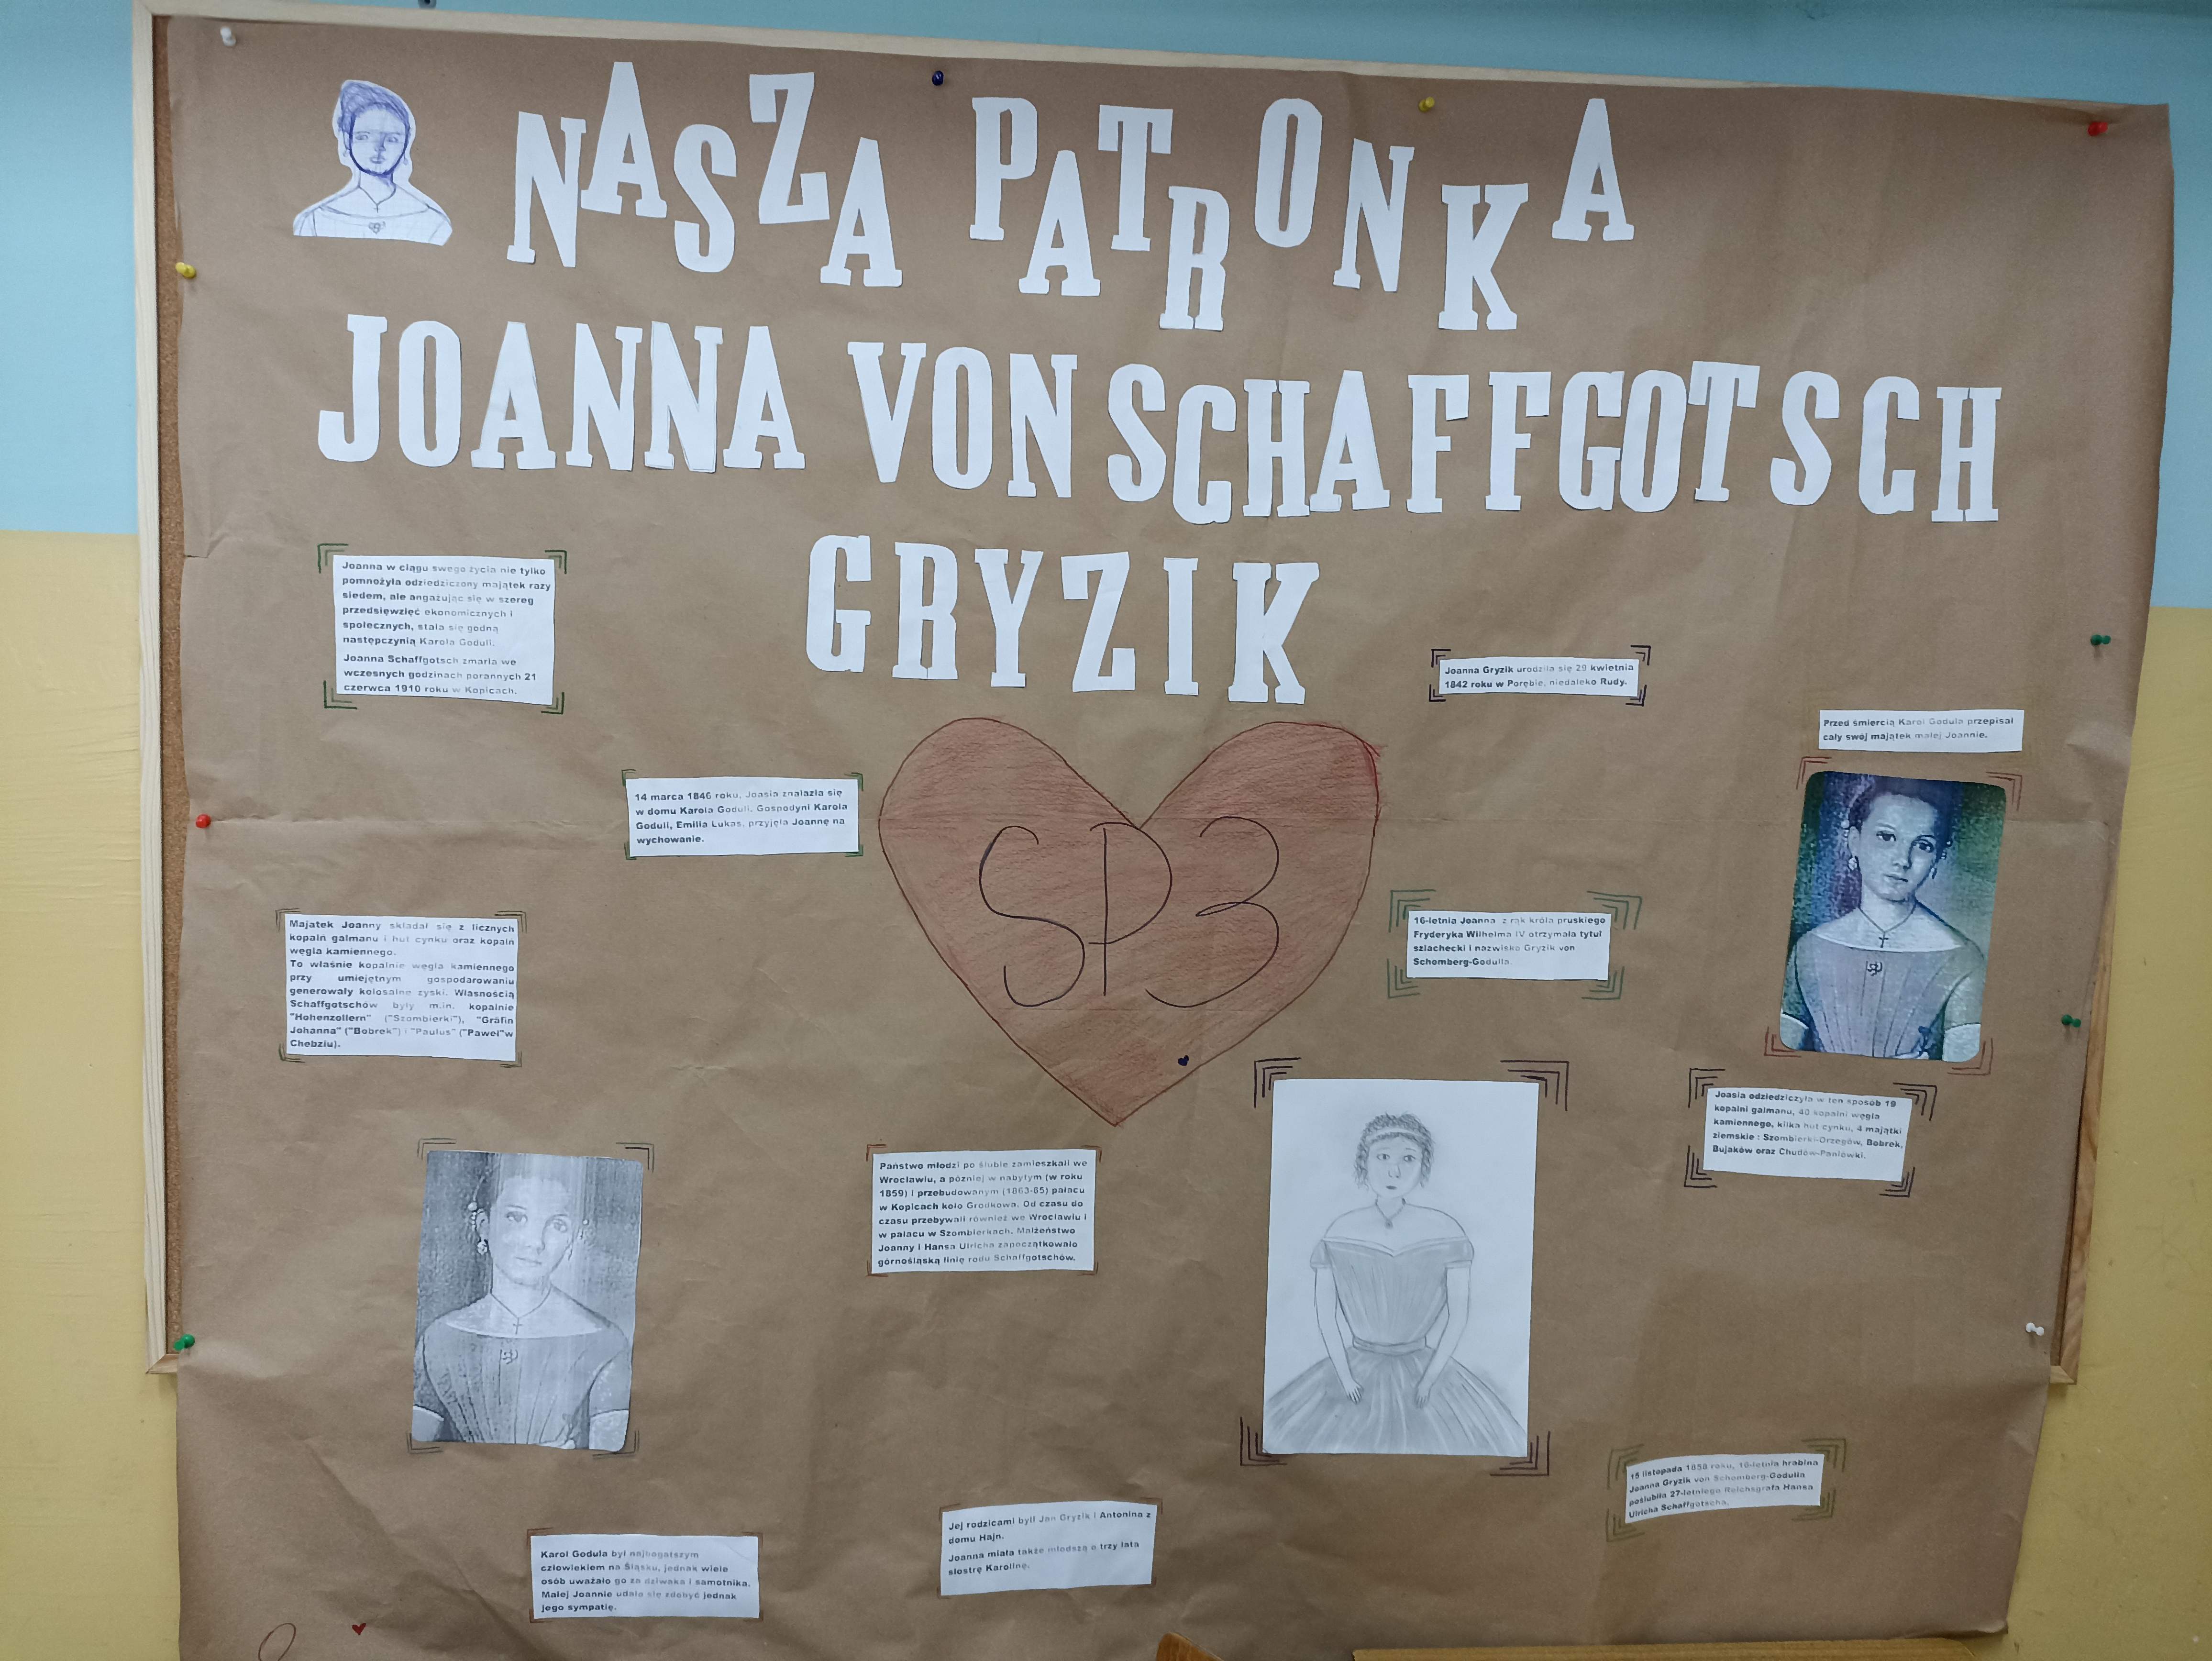 NASZA PATRONKA
JOANNA VON SCHAFFGOTSCH
GRYZIK
Joanna w ciągu swego życia nie tylko
pomnożyła odziedziczony majątek razy
siedem, ale angażując się w szereg
przedsięwzięć ekonomicznych i
społecznych, stała się godną
następczynią Karola Goduli.
Joanna Schaffgotsch zmarła we
wczesnych godzinach porannych 21
czerwca 1910 roku w Kopicach.
Joanna Gryzik urodziła się 29 kwietnia
1842 roku w Porębie, niedaleko Rudy.
Przed śmiercią Karol Godula przepisał
cały swój majątek małej Joannie.
14 marca 1846 roku, Joasia znalazła się
w domu Karola Goduli. Gospodyni Karola
Goduli, Emilia Lukas, przyjęła Joannę na
wychowanie.
SP3
Majatek Joanny składał się z licznych
kopalń galmanu i hut cynku oraz kopalń
węgla kamiennego.
To właśnie kopalnie węgla kamiennego
przy umiejętnym gospodarowaniu
generowały kolosalne zyski. Własnością
Schaffgotschów były m.in. kopalnie
"Hohenzollern" ("Szombierki"), "Gräfin
Johanna" ("Bobrek") i "Paulus" ("Paweł"w
Chebziu).
16-letnia Joanna z rąk króla pruskiego
Fryderyka Wilhelma IV otrzymała tytuł
szlachecki i nazwisko Gryzik von
Schomberg-Godulla.
Joasia odziedziczyła w ten sposób 19
kopalni galmanu, 40 kopalni węgla
kamiennego, kilka hut cynku, 4 majątki
ziemskie : Szombierki-Orzegów, Bobrek,
Bujaków oraz Chudów-Paniówki.
Państwo młodzi po ślubie zamieszkali we
Wrocławiu, a później w nabytym (w roku
1859) i przebudowanym (1863-65) pałacu
w Kopicach koło Grodkowa. Od czasu do
czasu przebywali również we Wrocławiu i
w pałacu w Szombierkach. Małżeństwo
Joanny i Hansa Ulricha zapoczątkowało
górnośląską linię rodu Schaffgotschów.
15 listopada 1858 roku, 16-letnia hrabina
Joanna Gryzik von Schomberg-Godulla
poślubiła 27-letniego Reichsgrafa Hansa
Ulricha Schaffgotscha.
Jej rodzicami byli Jan Gryzik i Antonina z
domu Hajn.
Joanna miała także młodszą o trzy lata
siostrę Karolinę.
Karol Godula był najbogatszym
człowiekiem na Śląsku, jednak wiele
osób uważało go za dziwaka i samotnika.
Małej Joannie udało się zdobyć jednak
jego sympatię.